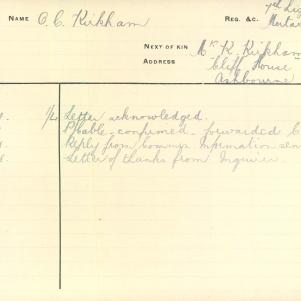 NAME O. C. Kirkham
REG. &C. 7th Lig
Mortar
NEXT OF KIN Mr K. Kirkham
ADDRESS Cliff House
Ashbourne
Letter acknowledged.
confirmed - forwarded
Reply from Comms Information sen
Letter of thanks from Inquirer.